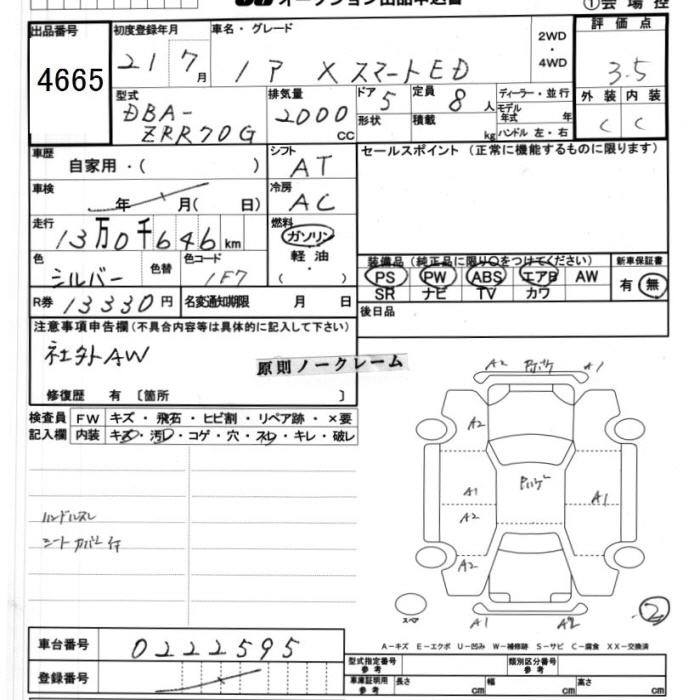 オークション出品申込書
①会場控
出品番号 初度登録年月 車名・グレード 2WD ・ 4WD 評価点
4665 21 7月 ノア X スマートED 3.5
型式 排気量 ドア 定員 ディーラー・並行 外装 内装
DBA- 2000 5 8人 モデル年式 年 C C
ZRR70G CC 形状 積載 kg ハンドル 左・右
車歴 シフト セールスポイント (正常に機能するものに限ります)
自家用・( ) AT
車検 冷房
年 月( 日) AC
走行 燃料
13万0千646km ガソリン
色 色替 色コード 軽油
シルバー 1F7 ( ・ )
装備品(純正品に限り○をつけてください) 新車保証書
PS PW ABS エアB AW 有 無
SR ナビ TV カワ
R券 13330円 名変通知期限 月 日 後日品
注意事項申告欄(不具合内容等は具体的に記入して下さい)
社外AW
原則ノークレーム
修復歴 有 〔箇所 〕
検査員 FW キズ・飛石・ヒビ割・リペア跡・×要
記入欄 内装 キズ・汚れ・コゲ・穴・スレ・キレ・破レ
ハンドルスレ
シートカバー付
A2 A1
A2
A1 A1
A2
A2
スペア A1 A2
2
A−キズ E−エクボ U−凹み W−補修跡 S−サビ C−腐食 XX−交換済
車台番号 0222595
登録番号
型式指定番号 参考 類別区分番号 参考
車庫証明用 参考 長さ cm 幅 cm 高さ cm